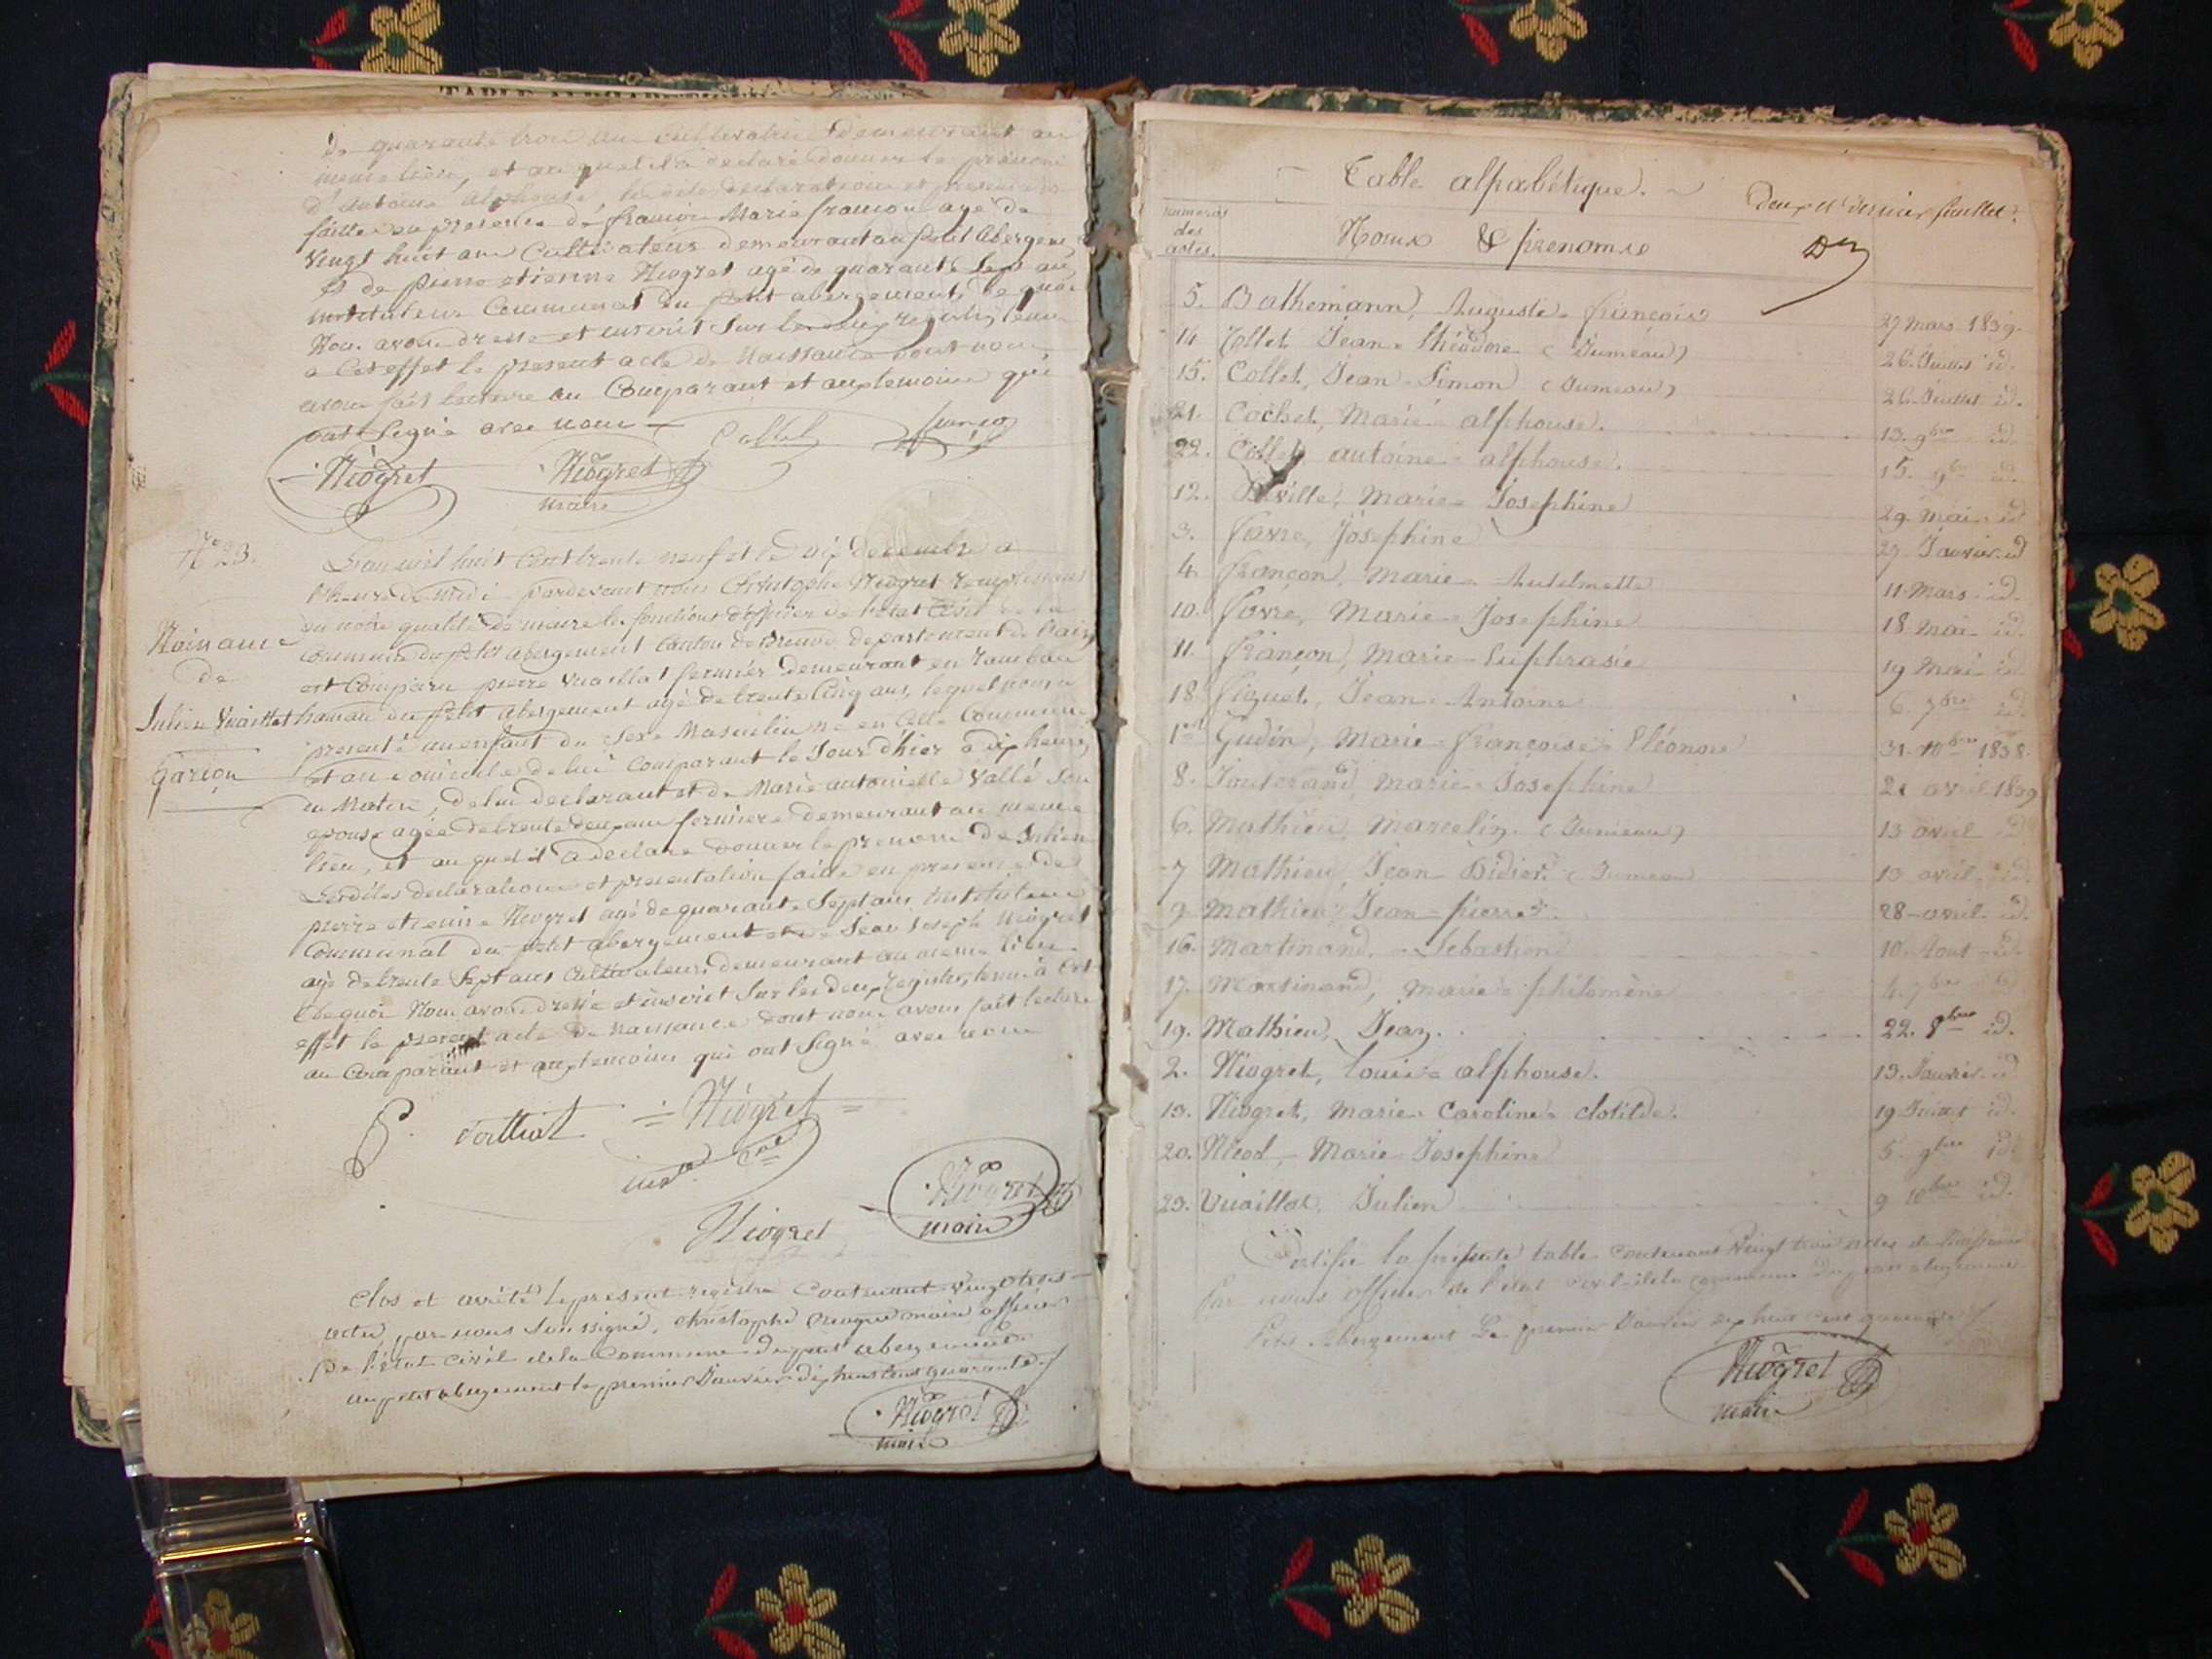 TABLE ALPHABETIQUE
de quarante trois ans cultivatrice demeurant au
meme lieu, et auquel il a declaré donner le prenom
d'antoine alphonse, les dites declaration et presentation
faites en presence de francon Marie francon agé de
vingt huit ans Cultivateur demeurant au petit abergement
et de pierre etienne Niogret agé de quarante Sept ans
instituteur Communal du petit abergement, de quoi
Nous avons dressé et inscrit Sur les deux registres tenus
a Cet effet le present acte de Naissance dont nous
avons fait lecture au Comparant et aux temoins qui
ont Signé avec nous
Collet francon
Niogret Niogret
maire
N° 23.
Naissance
de
Julien Vuaillat
Garçon
L'an mil huit Cent trente neuf et le dix decembre a
l'heure de midi pardevant nous Christophe Niogret remplissant
en notre qualité de maire les fonctions d'officier de l'etat Civil de la
Commune du petit abergement Canton de Brenod departement de l'ain
est Comparu pierre Vuaillat fermier demeurant en
hameau du petit abergement agé de trente Cinq ans, lequel nous a
presenté un enfant du Sexe Masculin né en Cette Commune
et au domicile de lui Comparant le Jour d'hier a dix heures
du Matin, de lui declarant et de Marie antoinette Vallé Son
epouse agée de trente deux ans fermiere demeurant au meme
lieu, et auquel il a declaré donner le prenom de Julien
Lesdites declaration et presentation faite en presence de
pierre etienne Niogret agé de quarante Sept ans instituteur
Communal du petit abergement et de Jean Joseph Niogret
agé de trente Sept ans Cultivateur demeurant au meme lieu
De quoi Nous avons dressé et inscrit Sur les deux registres tenus à Cet
effet le present acte de Naissance dont nous avons fait lecture
au Comparant et aux temoins qui ont Signé avec nous
Niogret
Niogret
maire
Niogret
Clos et arrêté le present registre Contenant vingt trois
actes, par nous Soussigné, christophe Niogret maire officier
De l'état civil de la Commune du petit abergement
au petit abergement le premier Janvier dix huit cent quarante
Niogret
maire
Table alphabétique.
Deux et dernier feuillet.
numeros
des
actes.
Noms & prenoms
5. Bathemann, Auguste françois 27 Mars 1839.
14 Collet Jean Théodore (Jumeau) 26. Juillet id.
15. Collet, Jean Simon (Jumeau) 26. Juillet id.
21. Cochet, Marie alphonse. 13. 9bre id.
22. Collet antoine alphonse. 15. 9bre id.
12. Marie Josephine 29. Mai id
3. favre, Josephine 27. Janvier id
4. françon, Marie Anselmette 11. Mars id.
10. favre, Marie Josephine 18. Mai id.
11. françon, Marie Euphrasie 19 Mai id
18 figuet, Jean Antoine 6. 7bre id.
1er Gudin, Marie françoise Eléonore 31. 10bre 1838.
8. Jouterand, Marie Josephine 21 avril 1839
6. Mathieu, Marcelin (Jumeau) 13 avril id
7 Mathieu, Jean Didier (Jumeau 13 avril id.
9 Mathieu, Jean pierre. 28 avril id.
16. Martinand, Sebastien 10. Aout id.
17. Martinand, Marie philomène 4. 7bre id
19. Mathieu, Jean. 22. 8bre id.
2. Niogret, louis alphonse. 13. Janvier id
13. Niogret, Marie Caroline clotilde. 19 Juillet id.
20. Nicod, Marie Josephine 5. 9bre id.
23. Vuaillat, Julien 9 10bre id.
Certifié la présente table contenant Vingt trois actes de Naissance
Par nous officier de l'état civil de la commune du petit abergement
Petit Abergement Le premier Janvier dix huit cent quarante
Niogret
maire